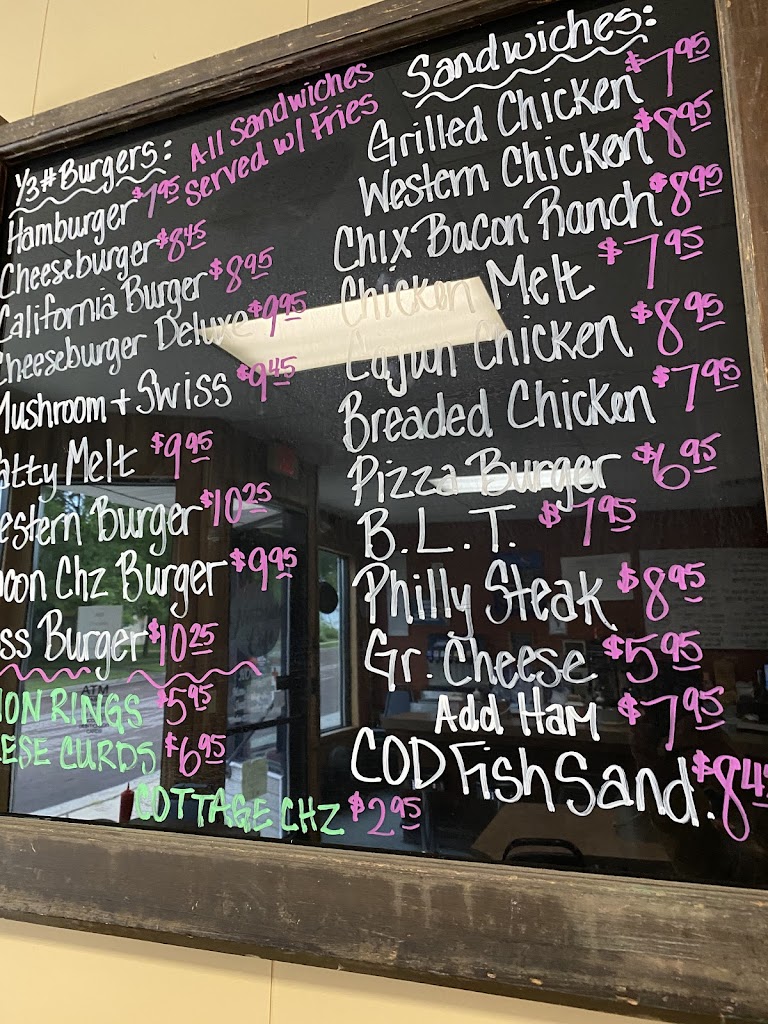 1/3# Burgers:
All Sandwiches
Served w/ Fries
Hamburger $7.95
Cheeseburger $8.45
California Burger $8.95
Cheeseburger Deluxe $9.95
Mushroom + Swiss $9.45
atty Melt $9.95
estern Burger $10.25
acon Chz Burger $9.95
ss Burger $10.25
ION RINGS $5.95
EESE CURDS $6.95
COTTAGE CHZ $2.95
Sandwiches:
Grilled Chicken $7.95
Western Chicken $8.95
Chix Bacon Ranch $8.95
Chicken Melt $7.95
Cajun Chicken $8.95
Breaded Chicken $7.95
Pizza Burger $6.95
B.L.T. $7.95
Philly Steak $8.95
Gr. Cheese $5.95
Add Ham $7.95
COD Fish Sand. $8.45
ATM